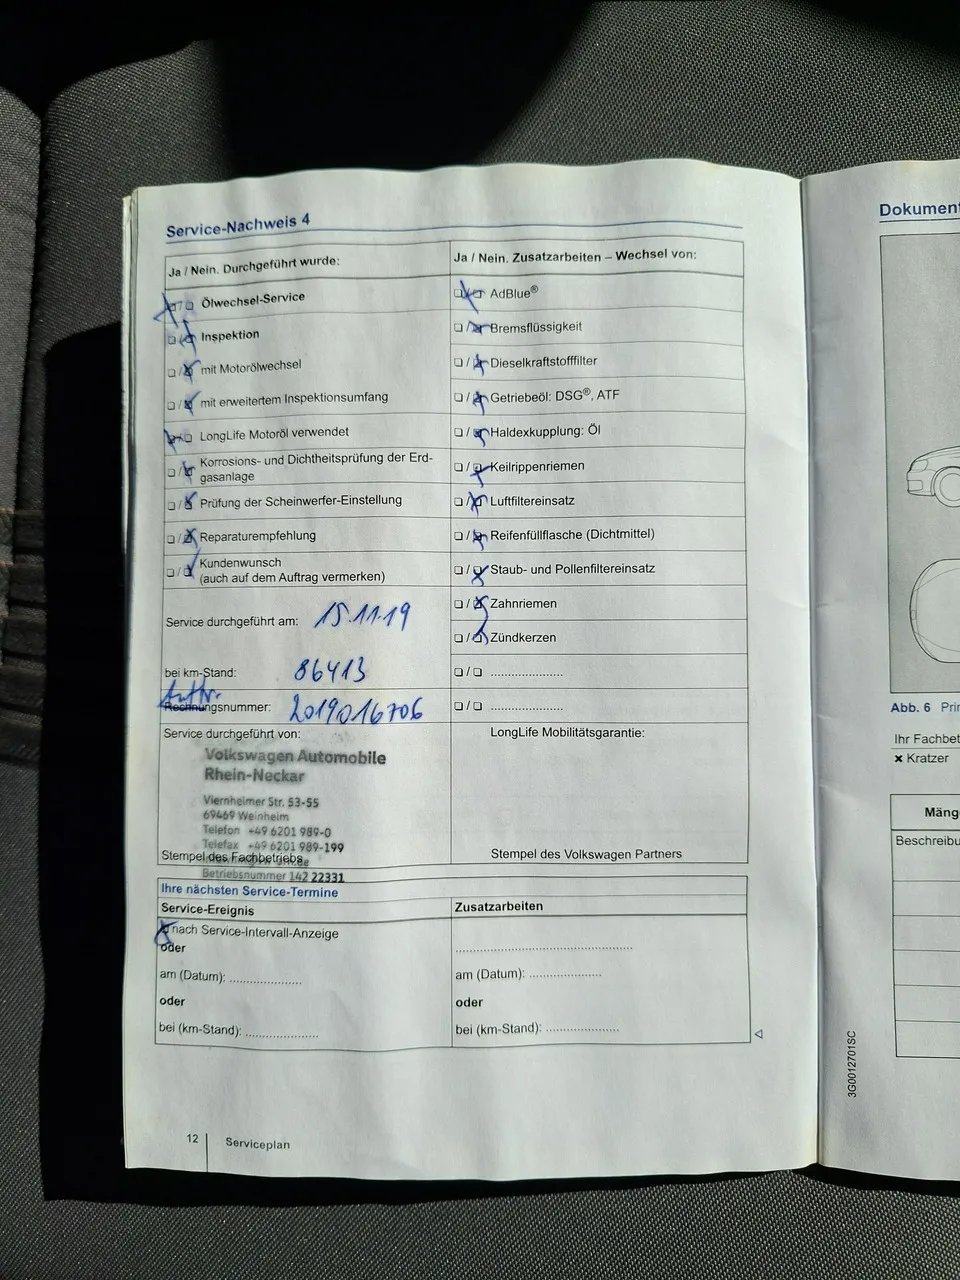 Service-Nachweis 4
Ja / Nein. Durchgeführt wurde:
Ölwechsel-Service
Inspektion
mit Motorölwechsel
mit erweitertem Inspektionsumfang
LongLife Motoröl verwendet
Korrosions- und Dichtheitsprüfung der Erd-
gasanlage
Prüfung der Scheinwerfer-Einstellung
Reparaturempfehlung
Kundenwunsch
(auch auf dem Auftrag vermerken)
Service durchgeführt am: 15.11.19
bei km-Stand: 86413
Auftr.
Rechnungsnummer: 2019016706
Service durchgeführt von:
Volkswagen Automobile
Rhein-Neckar
Viernheimer Str. 53-55
69469 Weinheim
Telefon +49 6201 989-0
Telefax +49 6201 989-199
Stempel des Fachbetriebs
Betriebsnummer 142 22331
Ja / Nein. Zusatzarbeiten – Wechsel von:
AdBlue®
Bremsflüssigkeit
Dieselkraftstofffilter
Getriebeöl: DSG®, ATF
Haldexkupplung: Öl
Keilrippenriemen
Luftfiltereinsatz
Reifenfüllflasche (Dichtmittel)
Staub- und Pollenfiltereinsatz
Zahnriemen
Zündkerzen
LongLife Mobilitätsgarantie:
Stempel des Volkswagen Partners
Ihre nächsten Service-Termine
Service-Ereignis
nach Service-Intervall-Anzeige
oder
am (Datum): ....................
oder
bei (km-Stand): ....................
Zusatzarbeiten
am (Datum): ....................
oder
bei (km-Stand): ....................
12 Serviceplan
Dokument
Abb. 6 Prin
Ihr Fachbet
× Kratzer
Mäng
Beschreibu
3G0012701SC